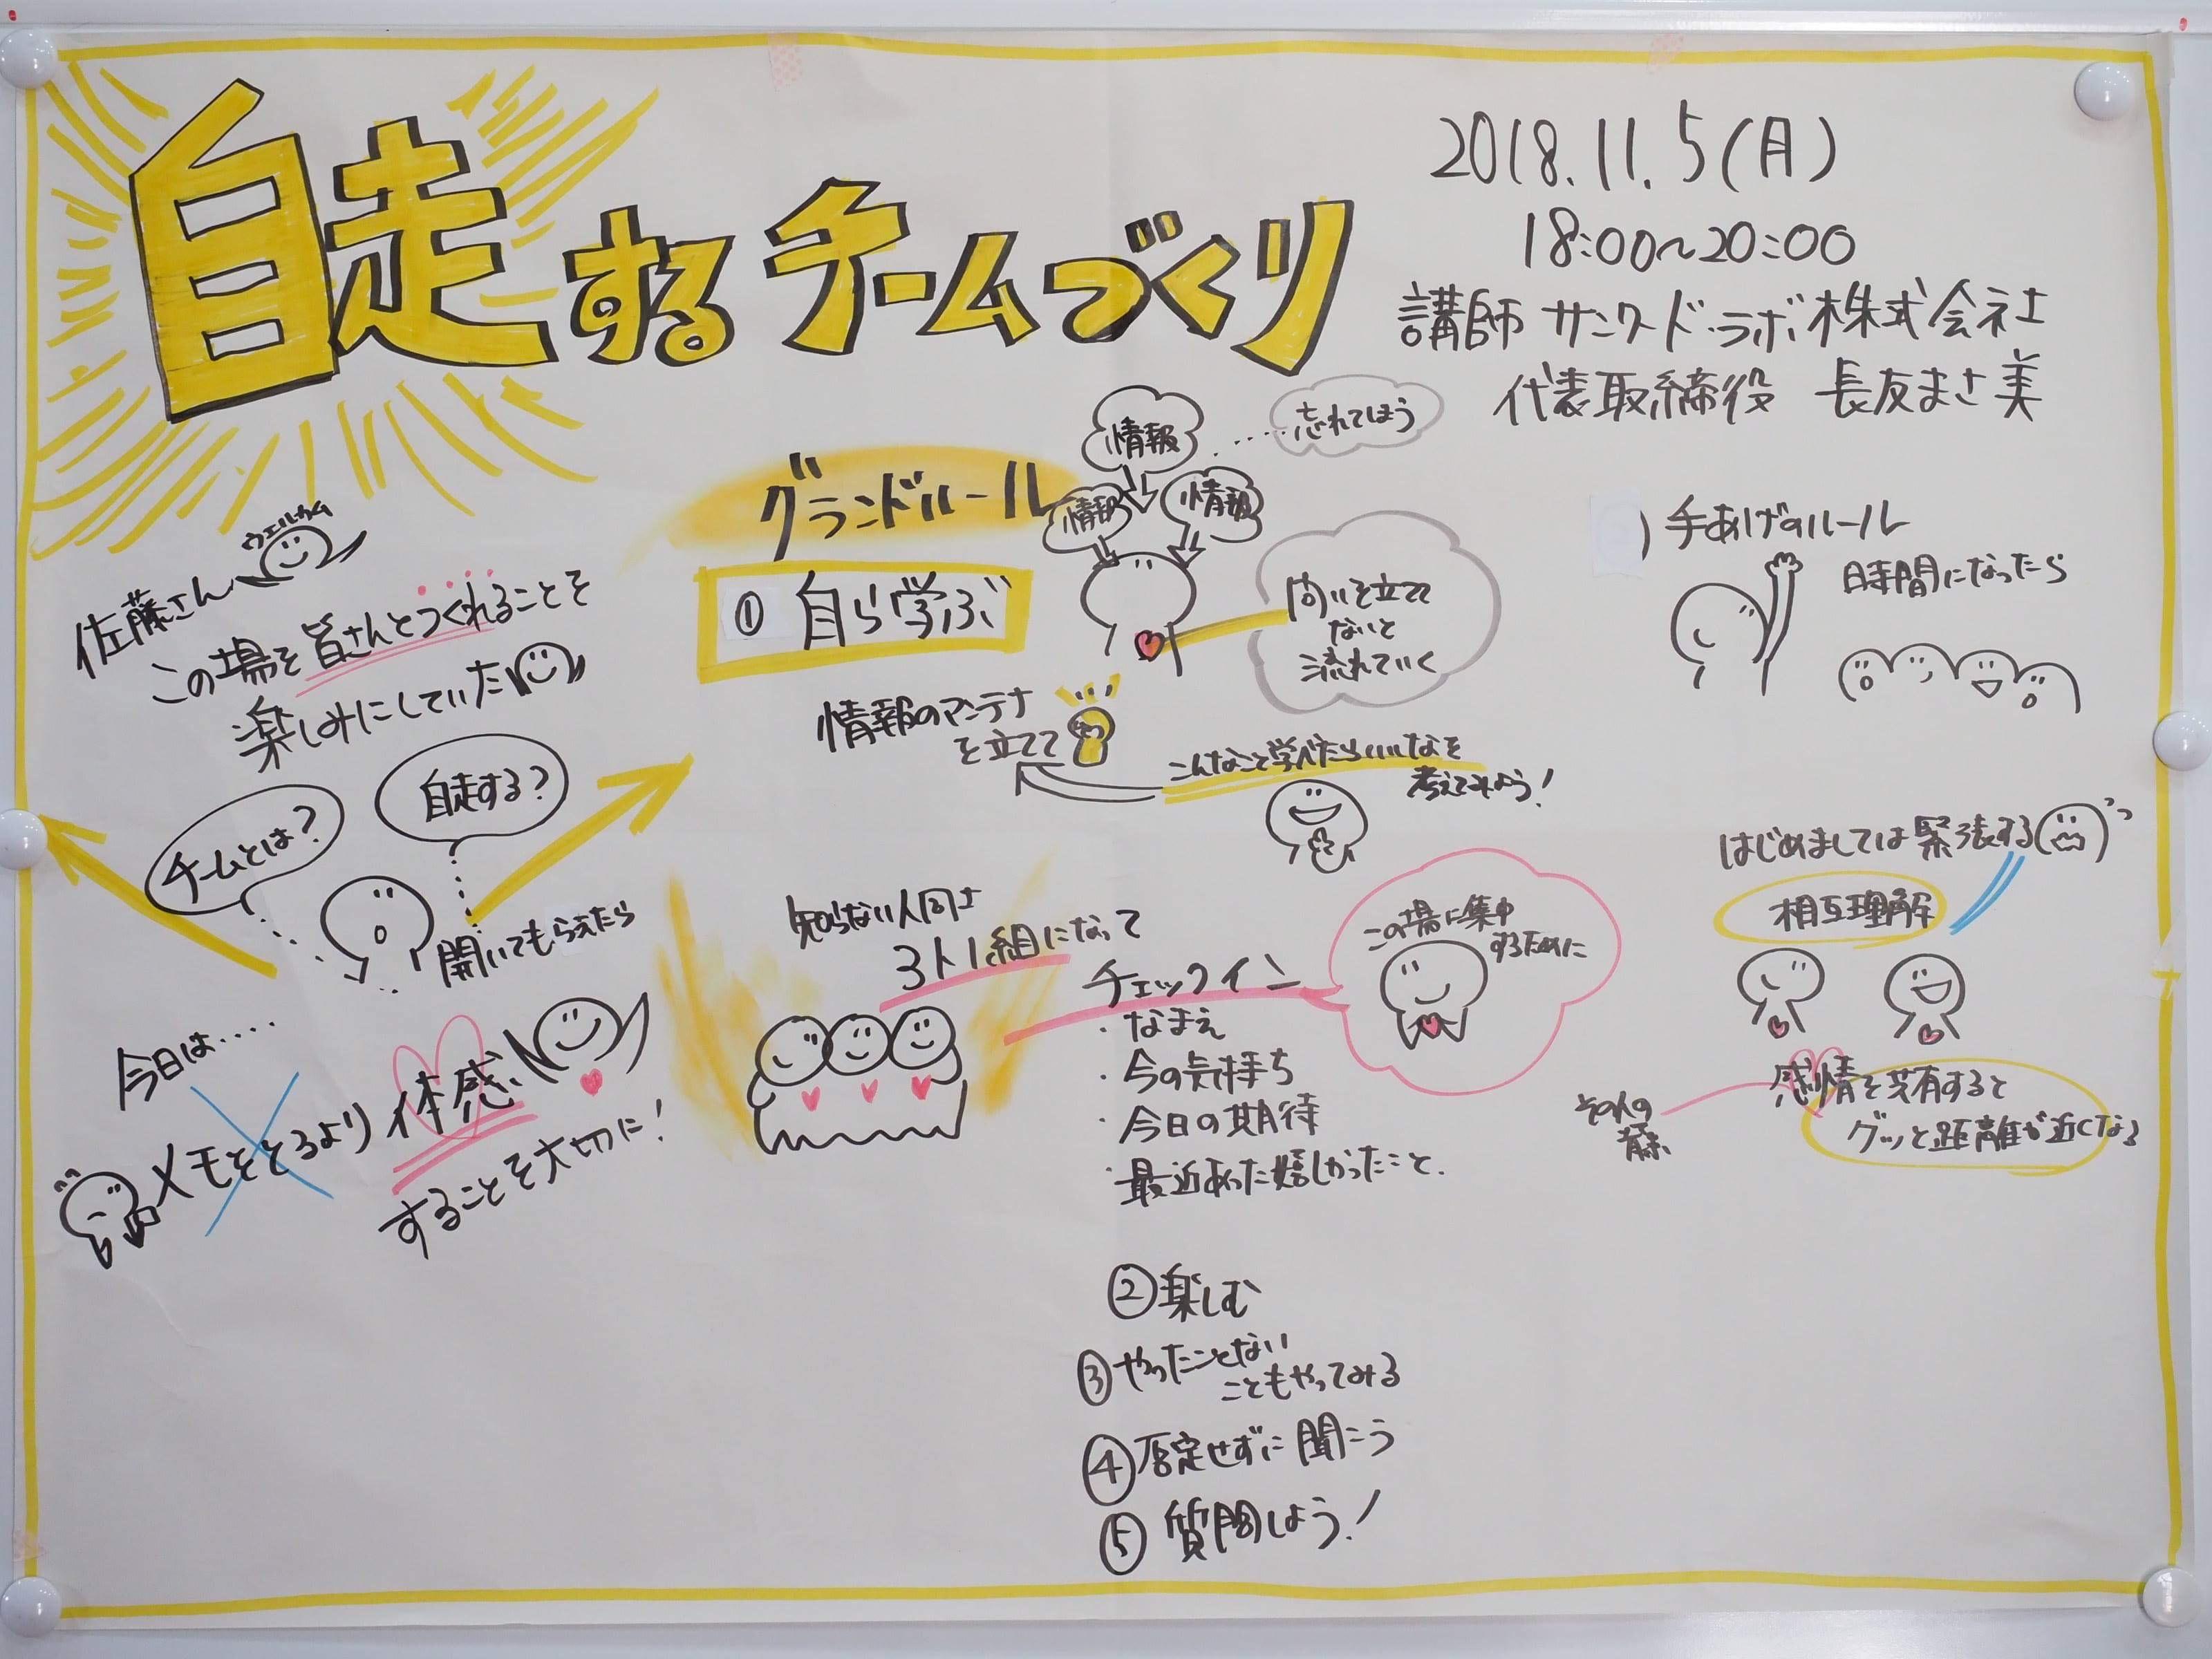 自走するチームづくり
2018.11.5(月)
18:00~20:00
講師 サンワード・ラボ株式会社
代表取締役 長友まさ美
ウェルカム
佐藤さん
この場を皆さんとつくれることを
楽しみにしていた
チームとは?
自走する?
開いてもらえたら
今日は‥‥
メモをとるより体感
することを大切に!
グランドルール
① 自ら学ぶ
情報
情報
情報
忘れてしまう
問いを立てて
ないと
流れていく
情報のアンテナ
を立てて
こんなこと学べたらいいなを
考えてみよう!
知らない人同士
3人1組になって
チェックイン
・なまえ
・今の気持ち
・今日の期待
・最近あった嬉しかったこと.
この場に集中
するために
②楽しむ
③やったことない
こともやってみる
④否定せずに聞こう
⑤質問しよう!
手あげのルール
時間になったら
はじめましては緊張する
相互理解
感情を共有すると
グッと距離が近くなる
その人の